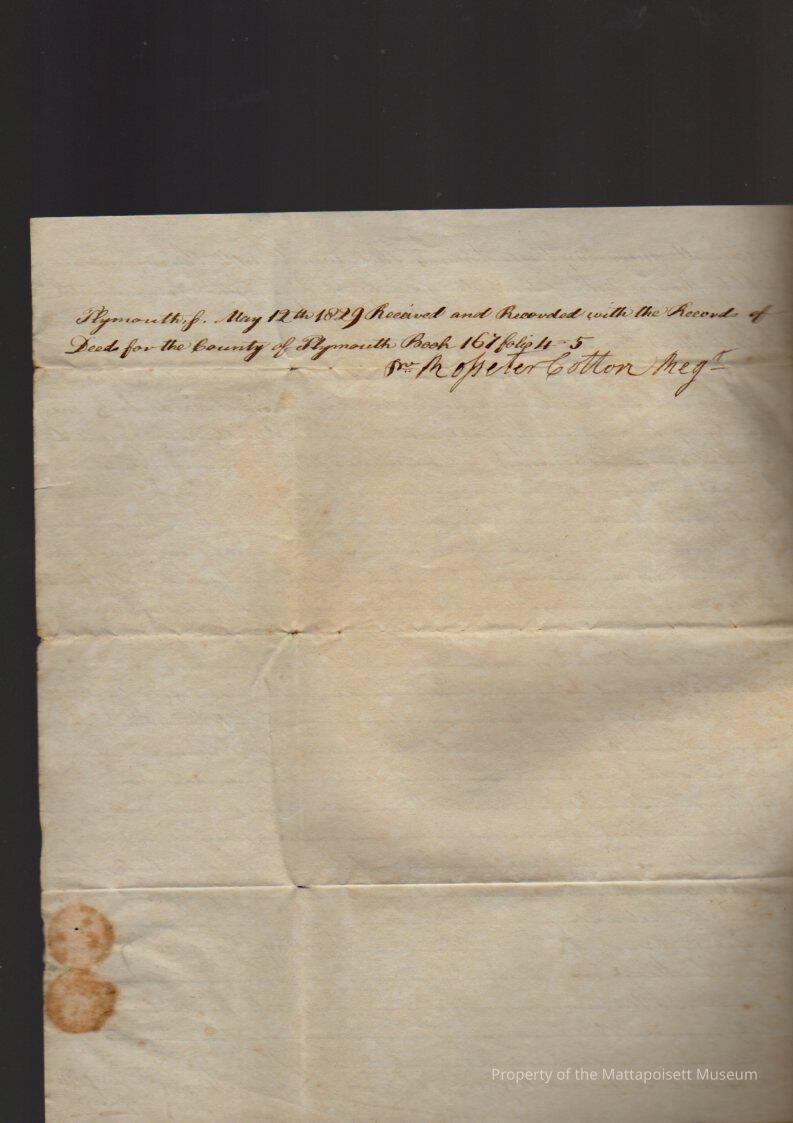 Plymouth, ss. May 12th 1829 Received and Recorded with the Records of
Deeds for the County of Plymouth Book 167 folio 4-5
Pr Rosseter Cotton Regr
Property of the Mattapoisett Museum